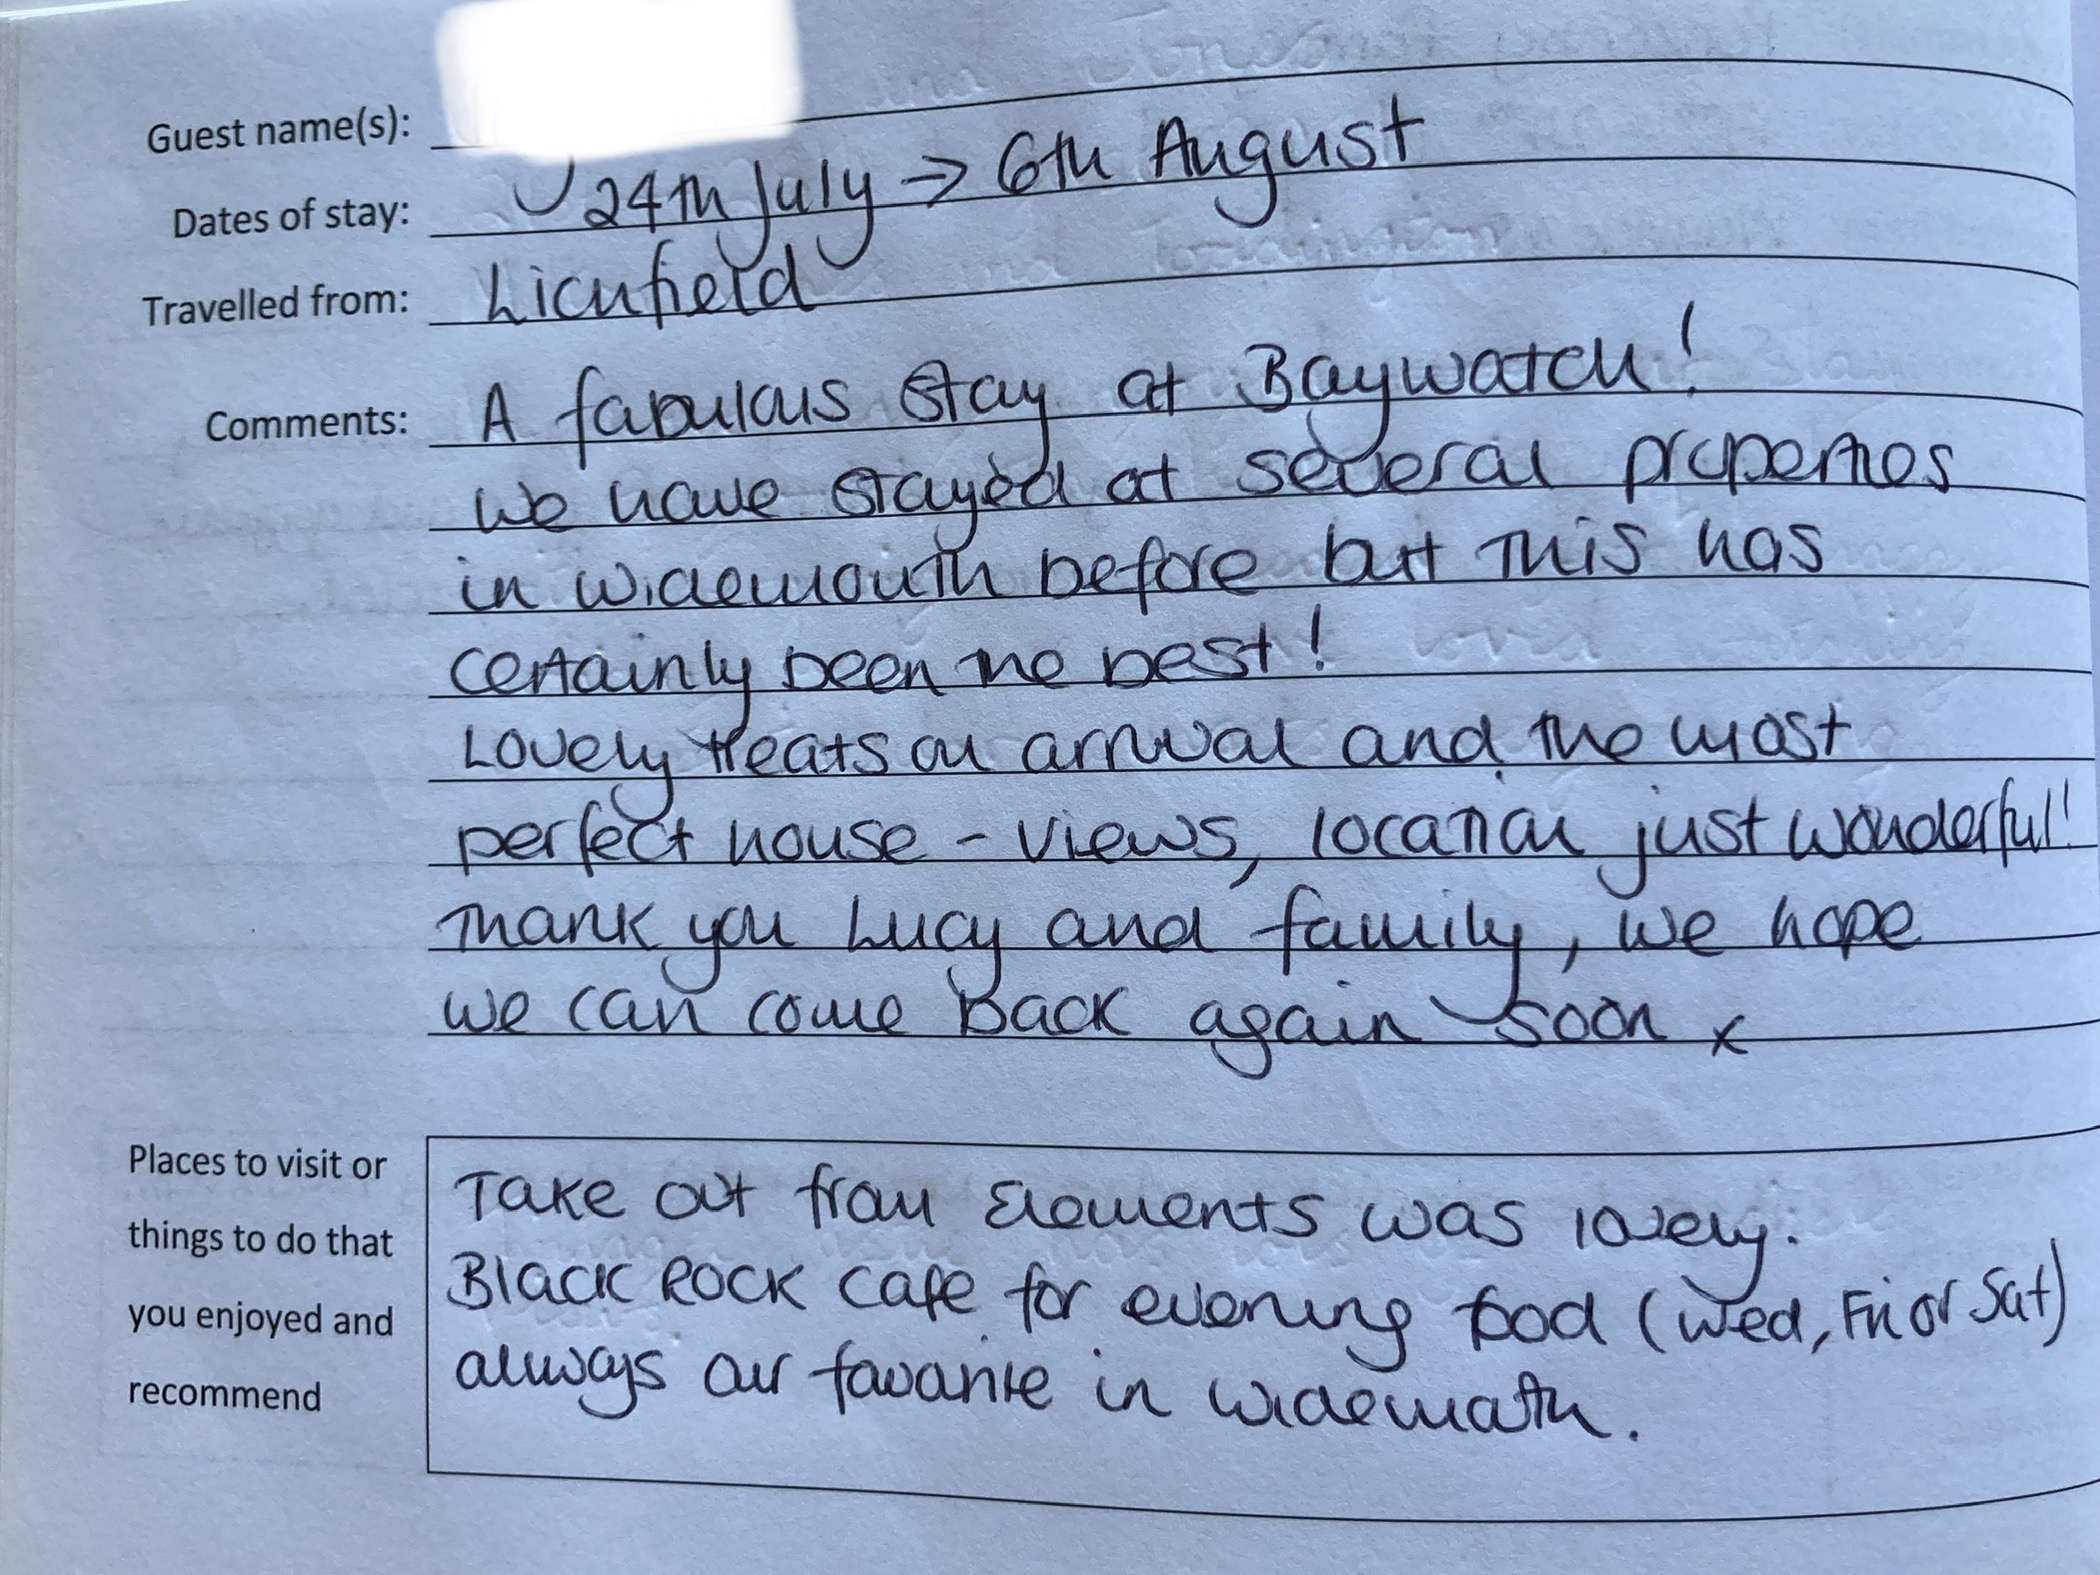 Guest name(s):
Dates of stay: 24th July → 6th August
Travelled from: Lichfield
Comments: A fabulous stay at Baywatch!
We have stayed at several properties
in widemouth before but this has
certainly been the best!
Lovely treats on arrival and the most
perfect house - views, location just wonderful!
Thank you Lucy and family, we hope
we can come back again soon x
Places to visit or
things to do that
you enjoyed and
recommend
Take out from Elements was lovely.
Black Rock cafe for evening food (Wed, Fri or Sat)
always our favourite in widemouth.